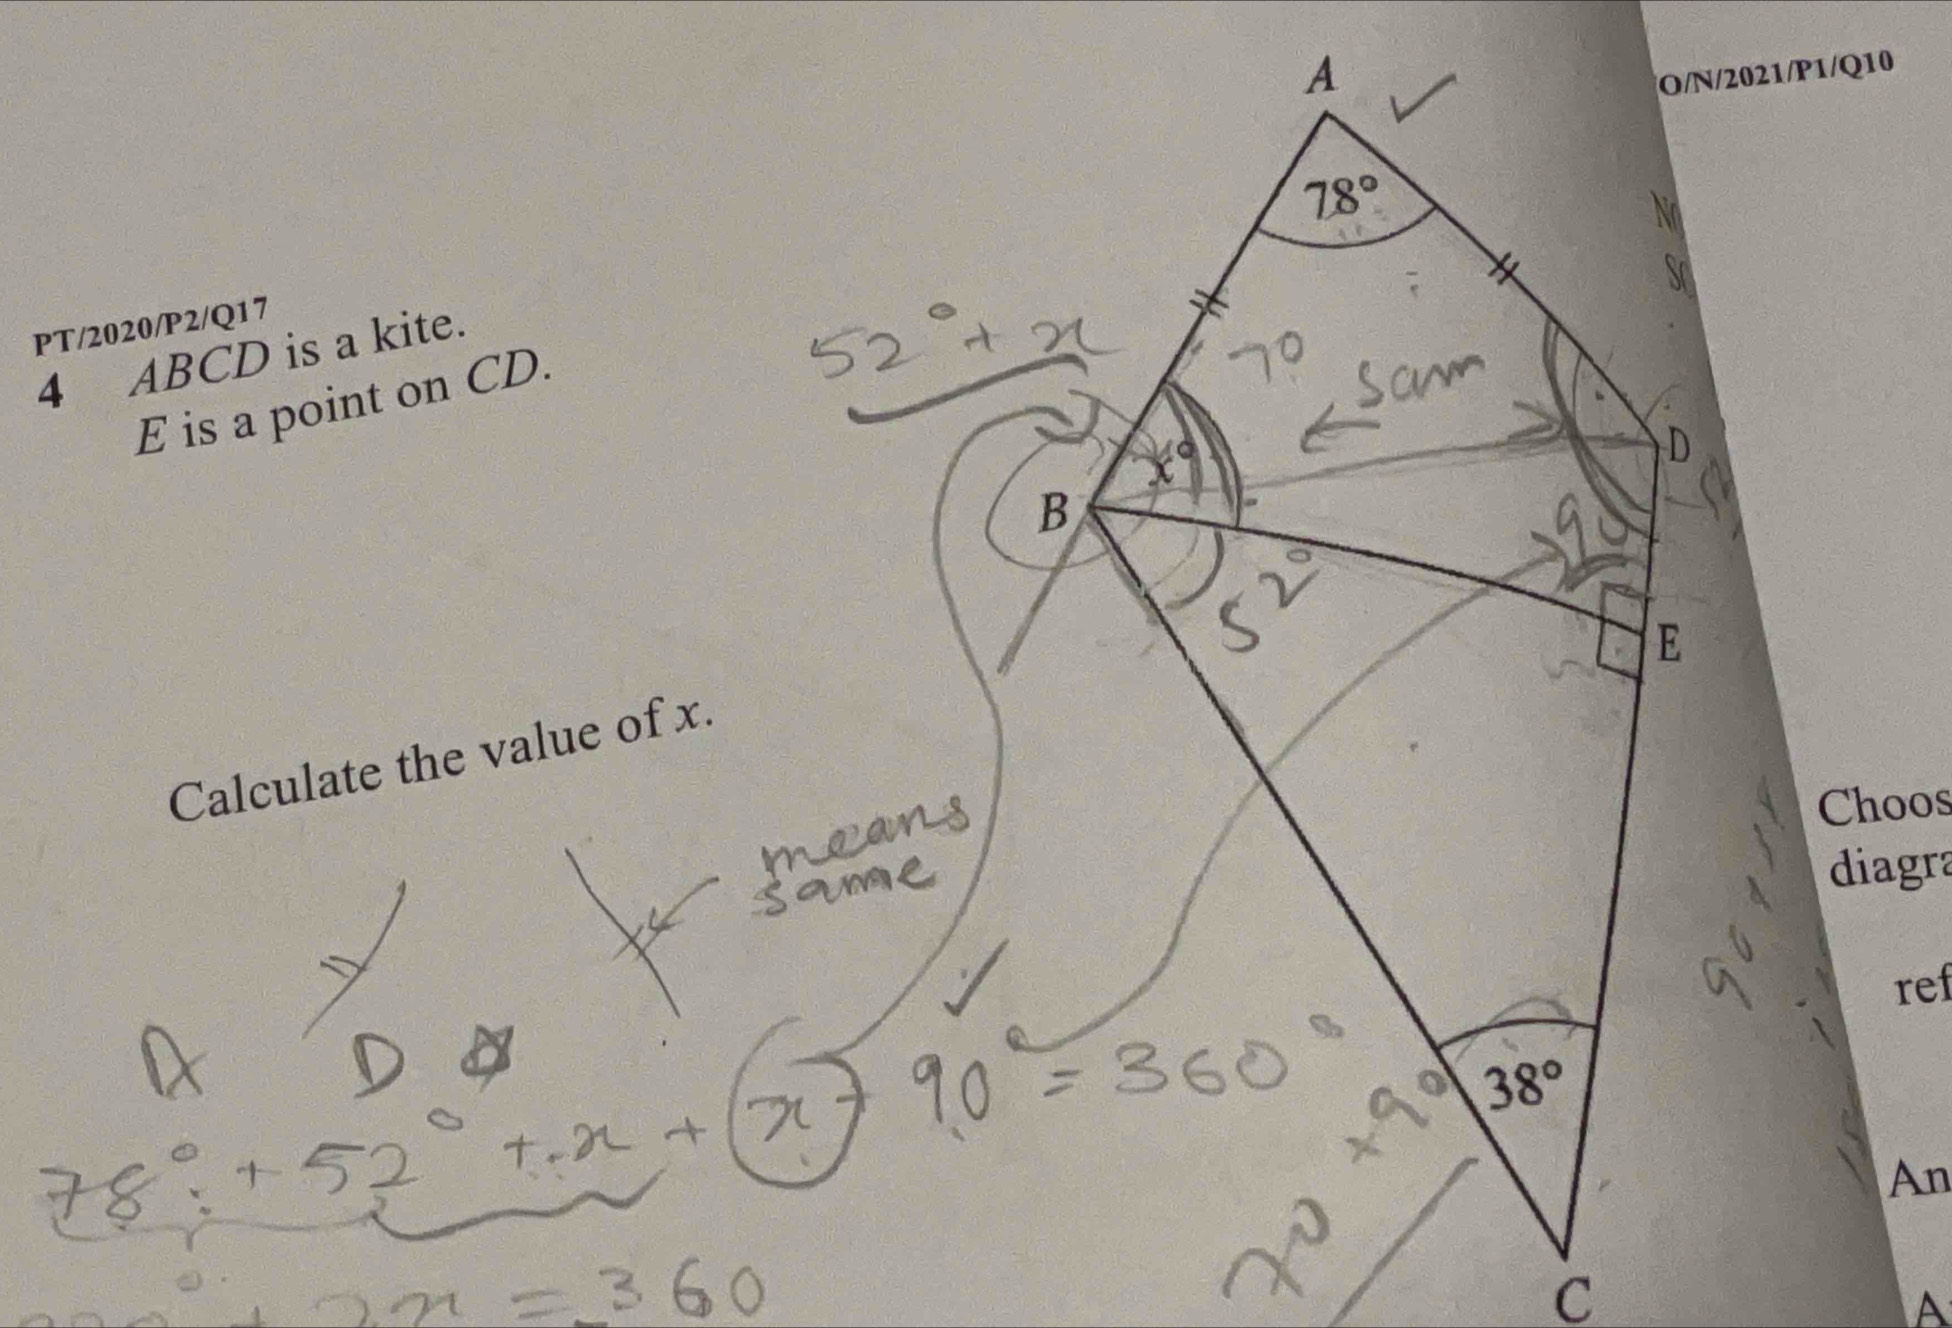 O/N/2021/P1/Q10
A
78°
PT/2020/P2/Q17
4 ABCD is a kite.
E is a point on CD.
52° + x
70
sam
x°
D
B
90
52°
E
Calculate the value of x.
means
same
Choos
diagra
ref
A D
78° + 52° + x + x + 90° = 360°
38°
70 + 90
An
+ 2x = 360
C
A